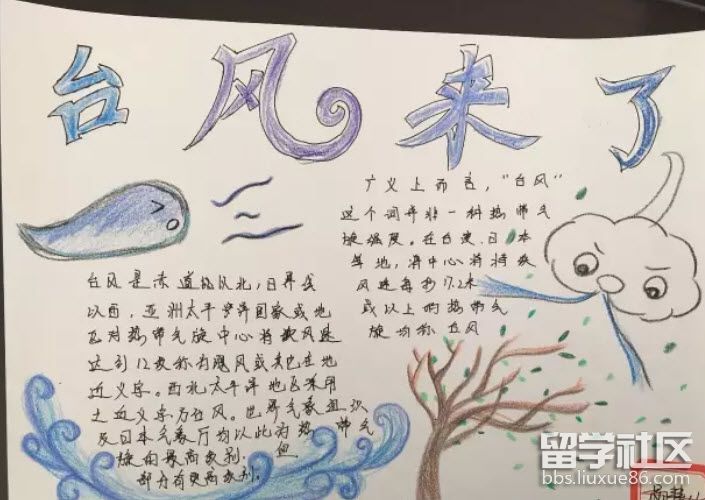 台风来了
广义上而言，“台风”
这个词并非一种热带气
旋强度。在台湾、日本
等地，将中心将持续
风速每秒17.2米
或以上的热带气
旋均称台风
台风是赤道以北，日界线
以西，亚洲太平洋国家或地
区对热带气旋中心将持风速
达到12级称有飓风或其它在地
近义字。西北太平洋地区采用
之近义字为台风。世界气象组织
及日本气象厅均以此为热带气
旋的最高级别。
部分有更高级别。
留学社区
bbs.liuxue86.com